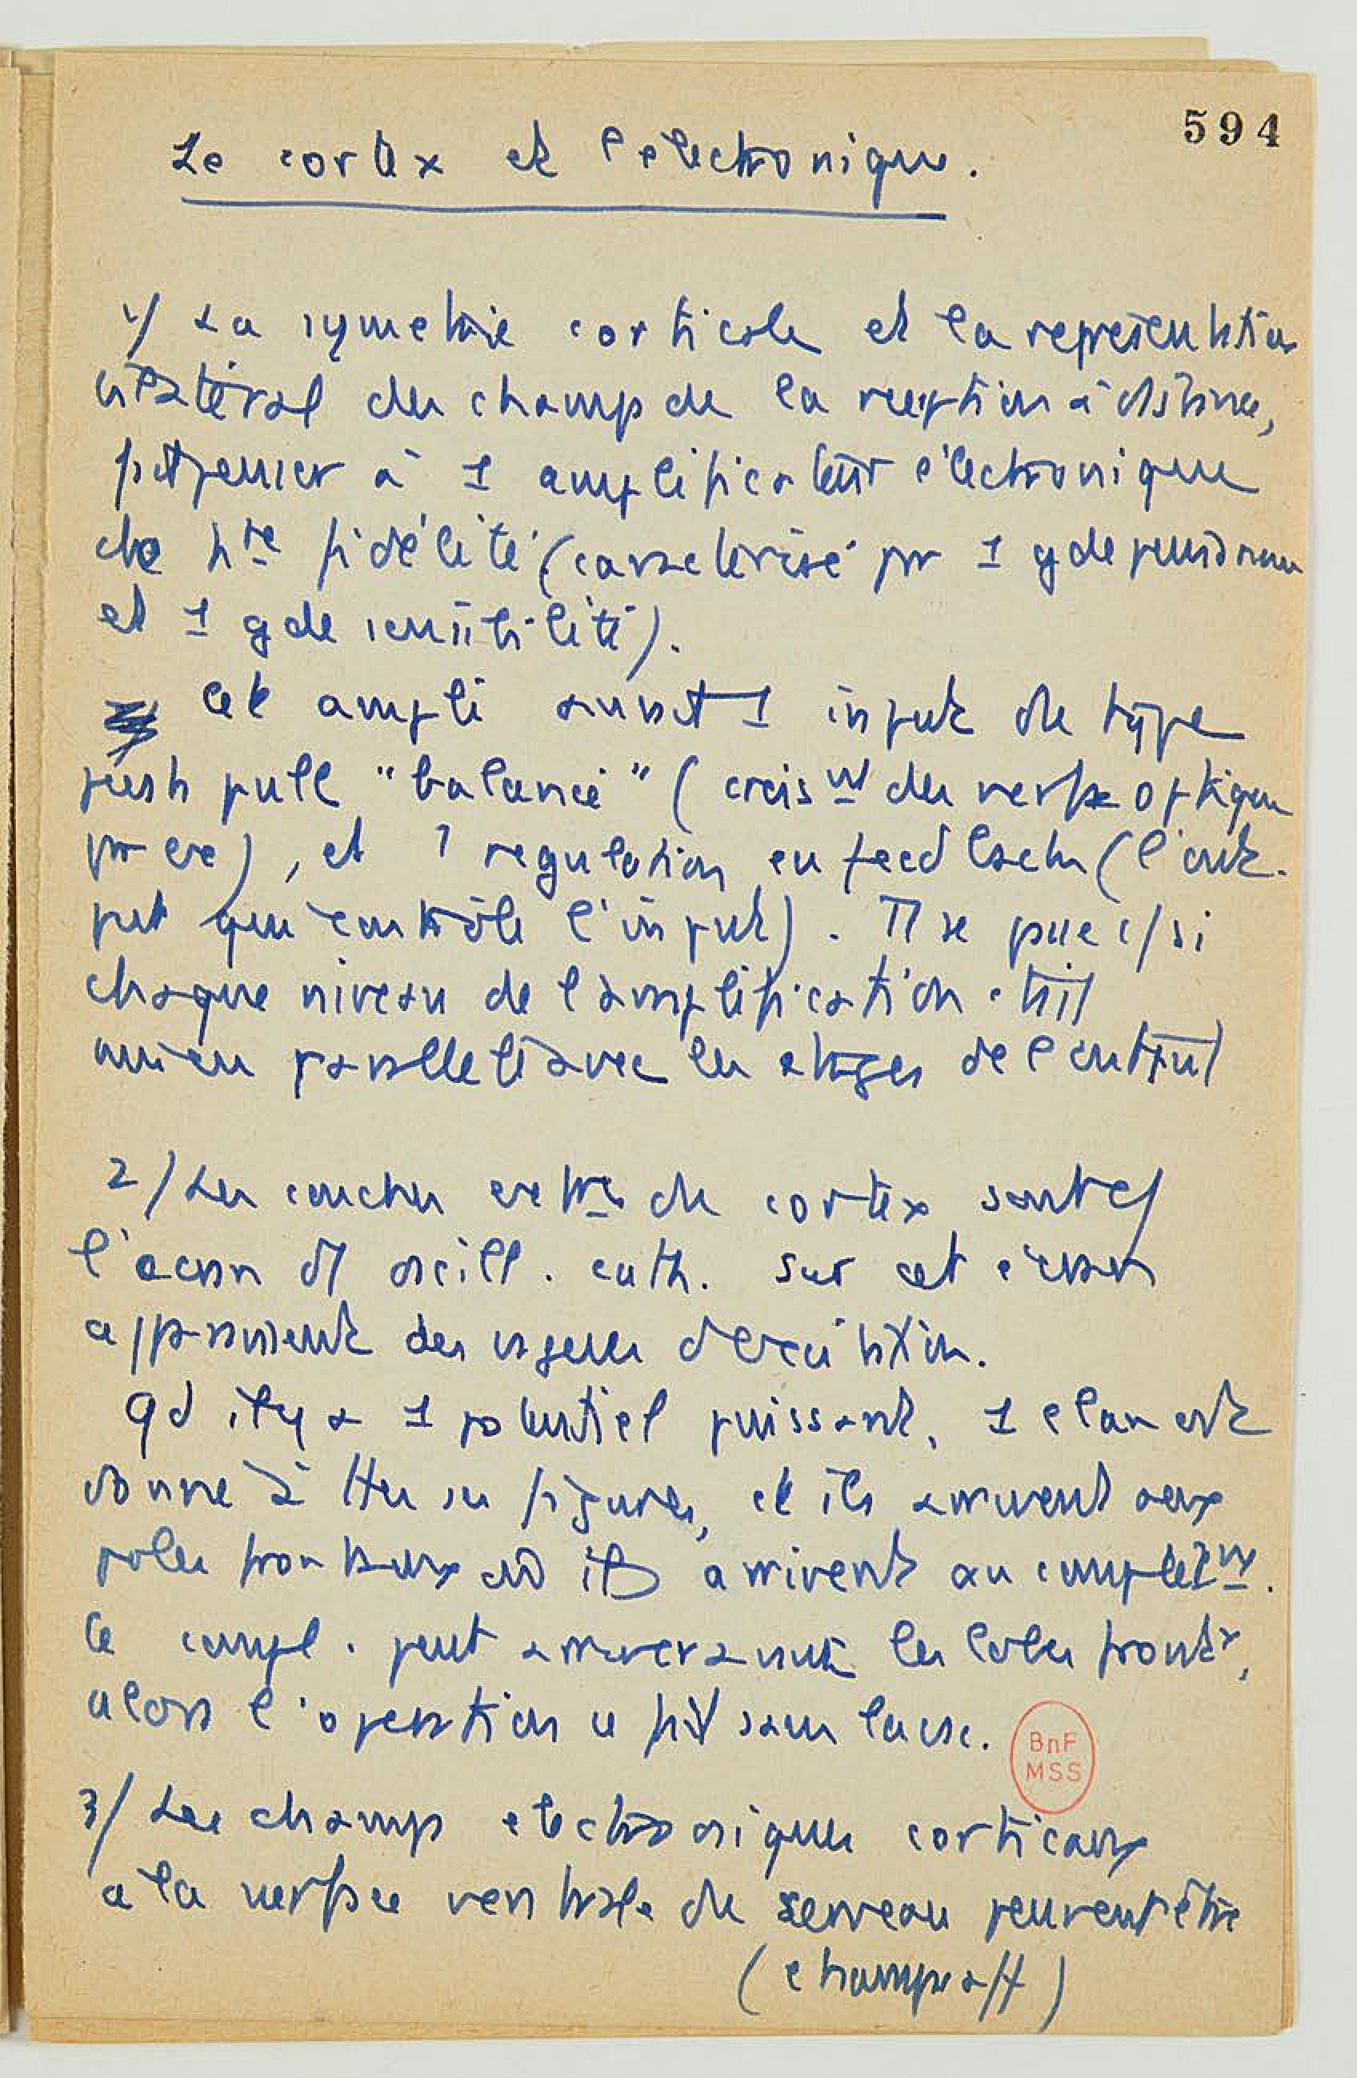 594
Le cortex et l'electronique.
1/ La symetrie corticale et la representation
bilatéral du champ de la reception à distance,
fait penser à 1 amplificateur électronique
de hte fidélité (caracterisé pr 1 gde puissance
et 1 gde sensibilité).
Cet ampli aurait 1 input de type
push pull "balancé" (crois nt des optique
pr ex), et 1 regulation en feed back (l'out-
put qui contrôle l'input). Il se passe c/si
chaque niveau de l'amplification était
mis en parallele avec les etages de l'output
2/ Les couches du cortex sont c/
l'ecran d'1 oscill. cath. Sur cet écran
apparaissent des vagues d'excitation.
Qd il y a 1 potentiel puissant, 1 elan est
donné à ttes ses figures, et ils arrivent aux
poles frontaux où ils arrivent au complet nt.
Ce compl. peut arriver avant les lobes front x,
alors l'operation se fait sans laisse.
3/ Les champs electroniques corticaux
a la surface ventrale du serveau peuvent être
(champs aff)
BnF
MSS